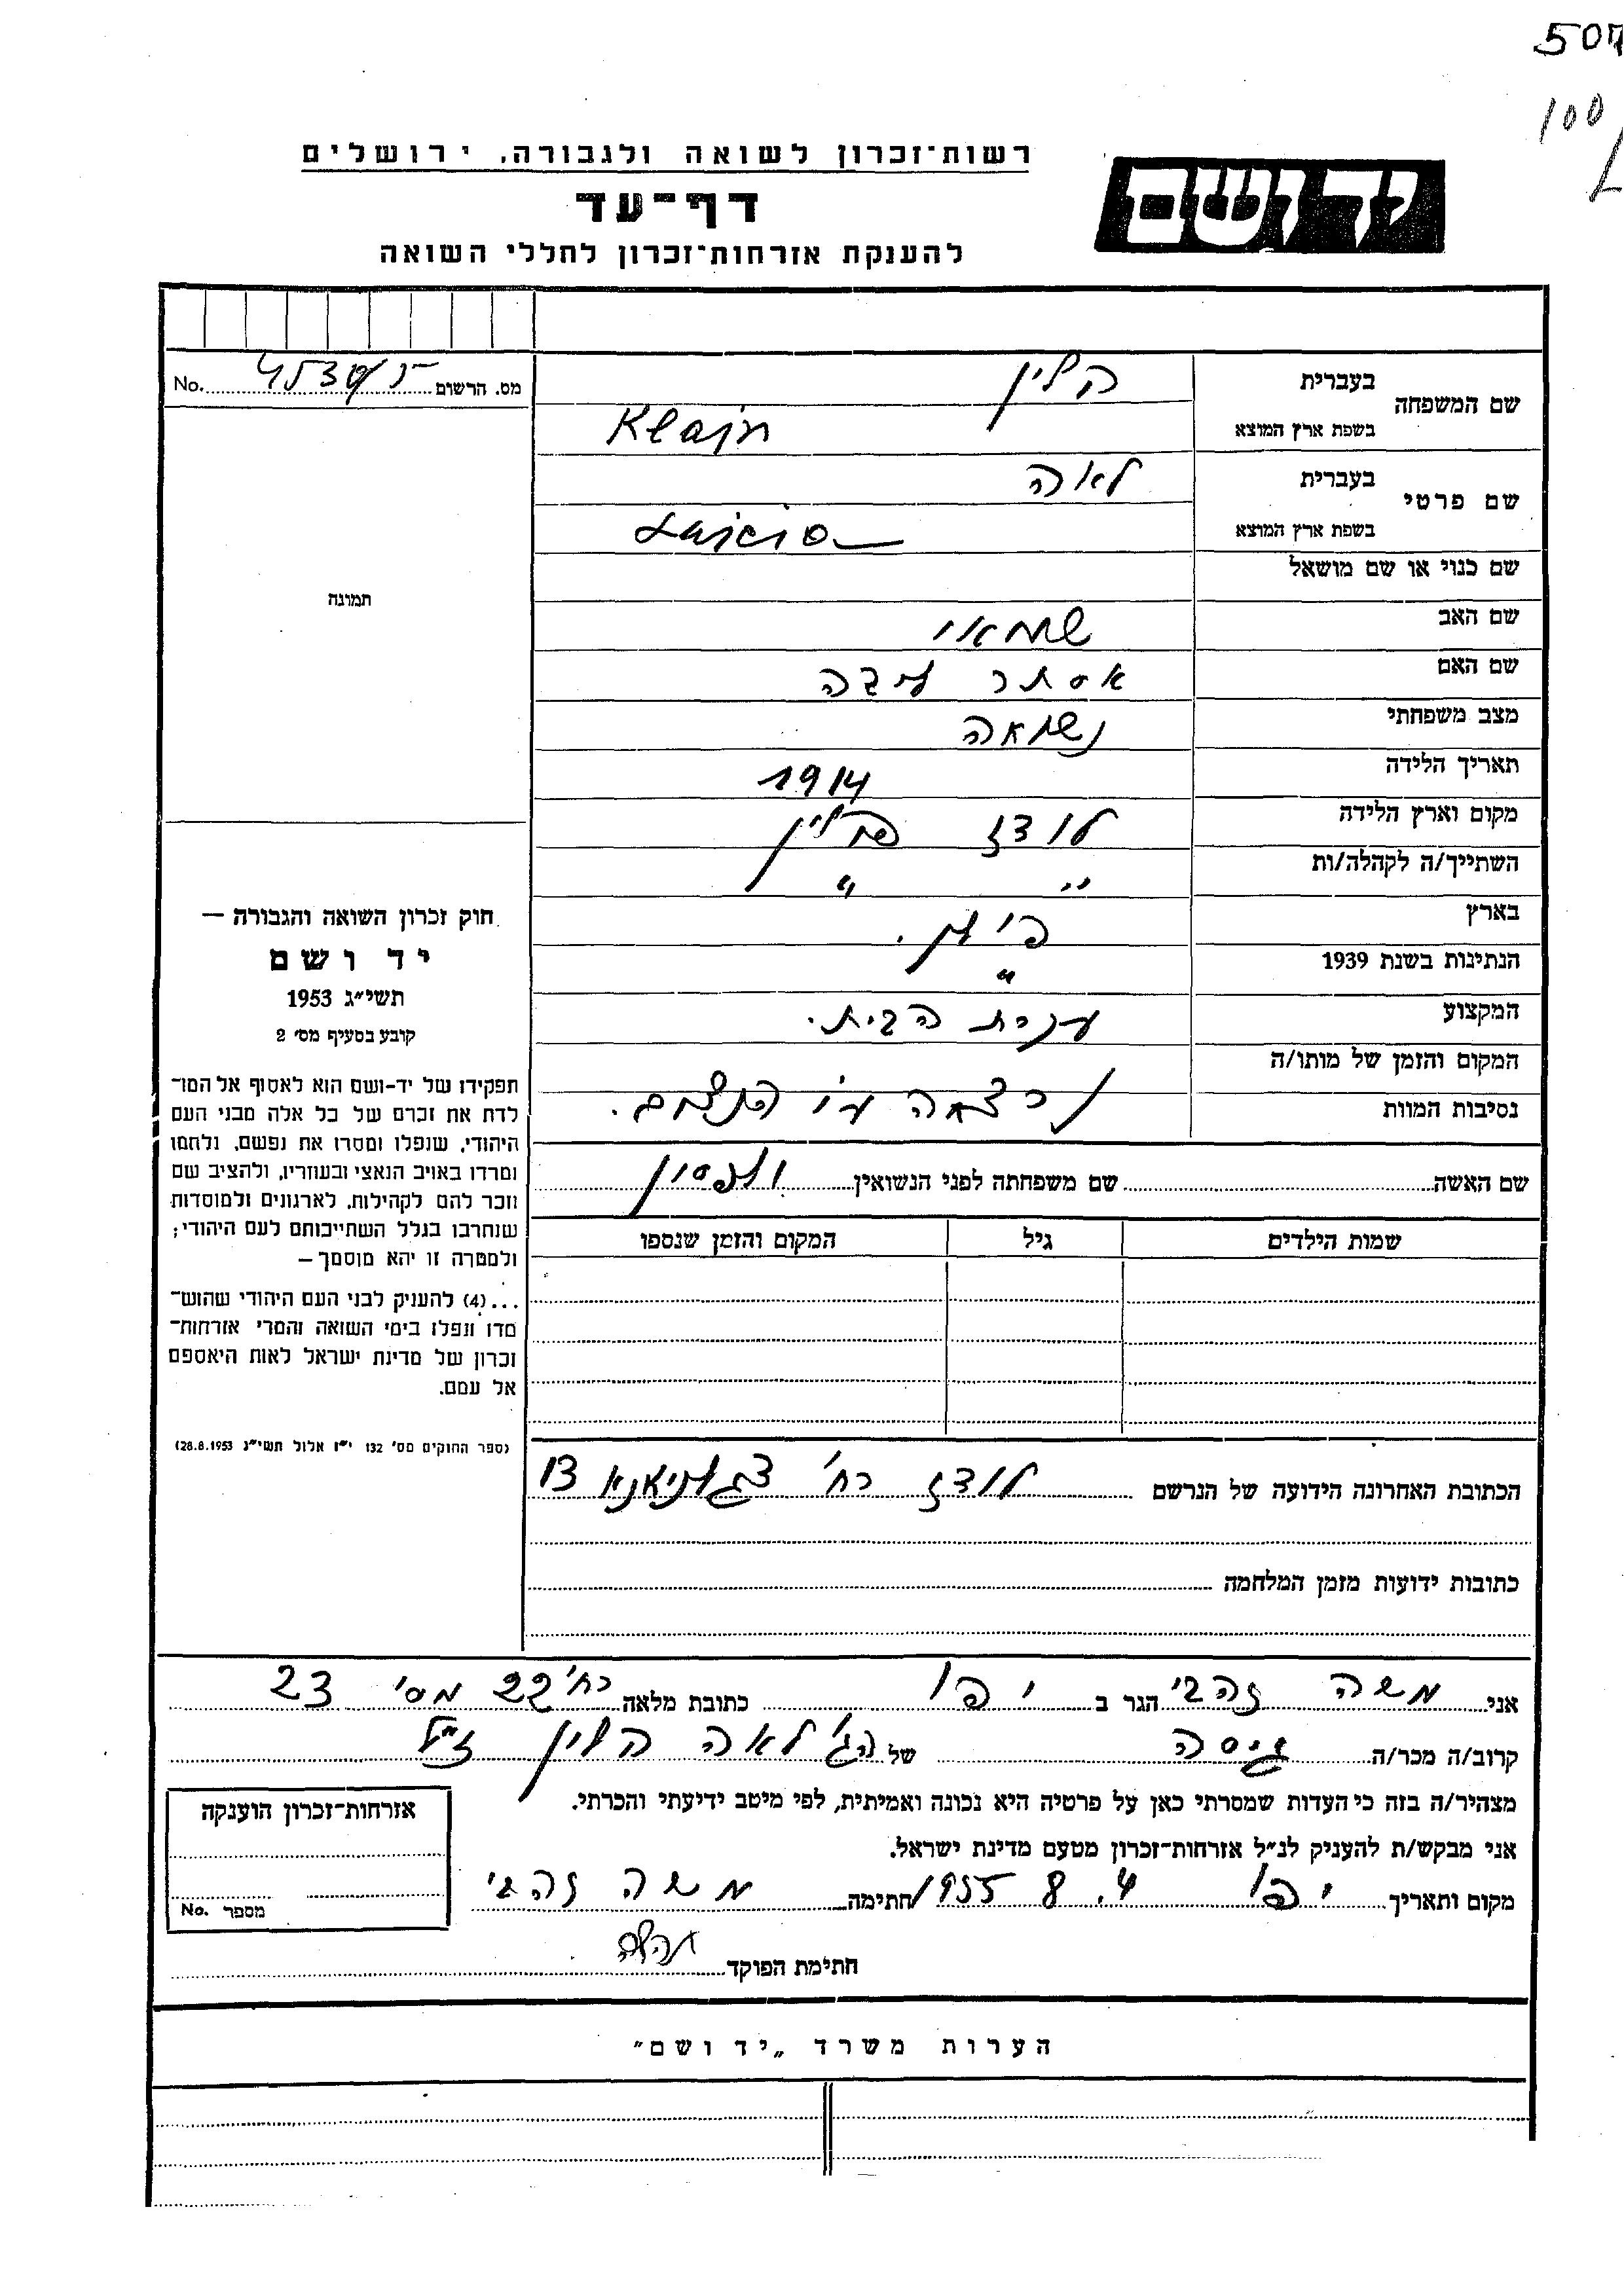 507
100
רשות־זכרון לשואה ולגבורה, ירושלים
יד ושם
דף־עד
להענקת אזרחות־זכרון לחללי השואה
מס. הרשום No.
שם המשפחה בעברית קלין
בשפת ארץ המוצא Klajn
שם פרטי בעברית לאה
בשפת ארץ המוצא
שם כנוי או שם מושאל
תמונה
שם האב שמאי
שם האם אסתר
מצב משפחתי נשואה
תאריך הלידה 1914
מקום וארץ הלידה לודז פולין
השתייך/ה לקהלה/ות " "
בארץ פולין.
הנתינות בשנת 1939 "
המקצוע עקרת הבית.
המקום והזמן של מותו/ה
נסיבות המוות נרצחה ע״י הנאצים.
שם האשה שם משפחתה לפני הנשואין
שמות הילדים גיל המקום והזמן שנספו
חוק זכרון השואה והגבורה —
יד ושם
תשי״ג 1953
קובע בסעיף מס׳ 2
תפקידו של יד-ושם הוא לאסוף אל המו־
לדת את זכרם של כל אלה מבני העם
היהודי, שנפלו ומסרו את נפשם, נלחמו
ומרדו באויב הנאצי ובעוזריו, ולהציב שם
וזכר להם לקהילות, לארגונים ולמוסדות
שנחרבו בגלל השתייכותם לעם היהודי;
ולמטרה זו יהא מוסמך —
...(4) להעניק לבני העם היהודי שהוש־
מדו ונפלו בימי השואה והמרי אזרחות־
זכרון של מדינת ישראל לאות היאספם
אל עמם.
(ספר החוקים מס׳ 132 י״ז אלול תשי״ג 28.8.1953)
הכתובת האחרונה הידועה של הנרשם לודז רח׳ 13
כתובות ידועות מזמן המלחמה
אני משה זהבי הגר ב יפו כתובת מלאה רח׳ 22 מס׳ 23
קרוב/ה מכר/ה גיסה של הג׳ לאה קלין ז״ל
מצהיר/ה בזה כי העדות שמסרתי כאן על פרטיה היא נכונה ואמיתית, לפי מיטב ידיעתי והכרתי.
אני מבקש/ת להעניק לנ״ל אזרחות־זכרון מטעם מדינת ישראל.
מקום ותאריך יפו 4. 8 1955 חתימה משה זהבי
חתימת הפוקד
אזרחות־זכרון הוענקה
מספר No.
הערות משרד „יד ושם״